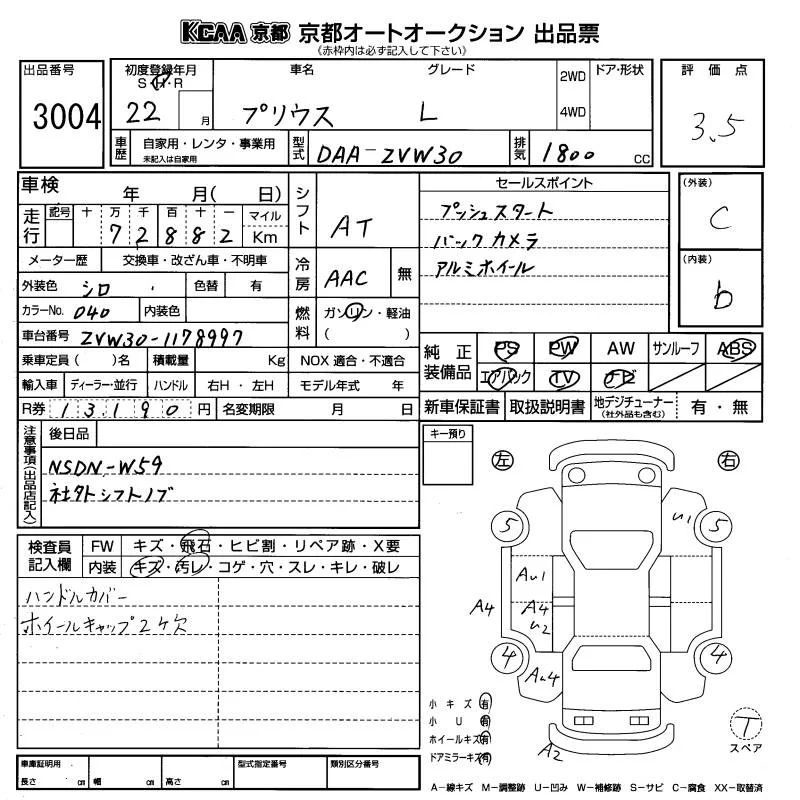 KCAA 京都 京都オートオークション 出品票
(赤枠内は必ず記入して下さい)
出品番号
3004
初度登録年月
S・H・R
22 月
車名
プリウス
グレード
L
2WD
4WD
ドア・形状
評価点
3.5
車歴
自家用・レンタ・事業用
未記入は自家用
型式
DAA-ZVW30
排気
1800 CC
車検 年 月( 日)
走行
記号 十 万 千 百 十 一 マイル
7 2 8 8 2 Km
メーター歴 交換車・改ざん車・不明車
外装色 シロ 色替 有
カラーNo. 040 内装色
車台番号 ZVW30-1178997
乗車定員( )名 積載量 Kg NOX 適合・不適合
輸入車 ディーラー・並行 ハンドル 右H・左H モデル年式 年
R券 13190円 名変期限 月 日
シフト
AT
冷房
AAC 無
燃料
ガソリン・軽油
( )
セールスポイント
プッシュスタート
バックカメラ
アルミホイール
(外装)
C
(内装)
b
純正装備品
PS PW AW サンルーフ ABS
エアバック TV ナビ
新車保証書 取扱説明書 地デジチューナー 有・無
(社外品も含む)
注意事項(出品店記入)
後日品
NSDN-W59
社外シフトノブ
キー預り
左
右
検査員記入欄
FW キズ・飛石・ヒビ割・リペア跡・X要
内装 キズ・汚レ・コゲ・穴・スレ・キレ・破レ
ハンドルカバー
ホイールキャップ2ケ欠
5
U1
5
AU1
A4
A4
U2
4
AU4
4
A2
小キズ 有
小U 有
ホイールキズ 有
ドアミラーキズ 有
T
スペア
車庫証明用
長さ cm 幅 cm 高さ cm
型式指定番号
類別区分番号
A-線キズ M-調整跡 U-凹み W-補修跡 S-サビ C-腐食 XX-取替済